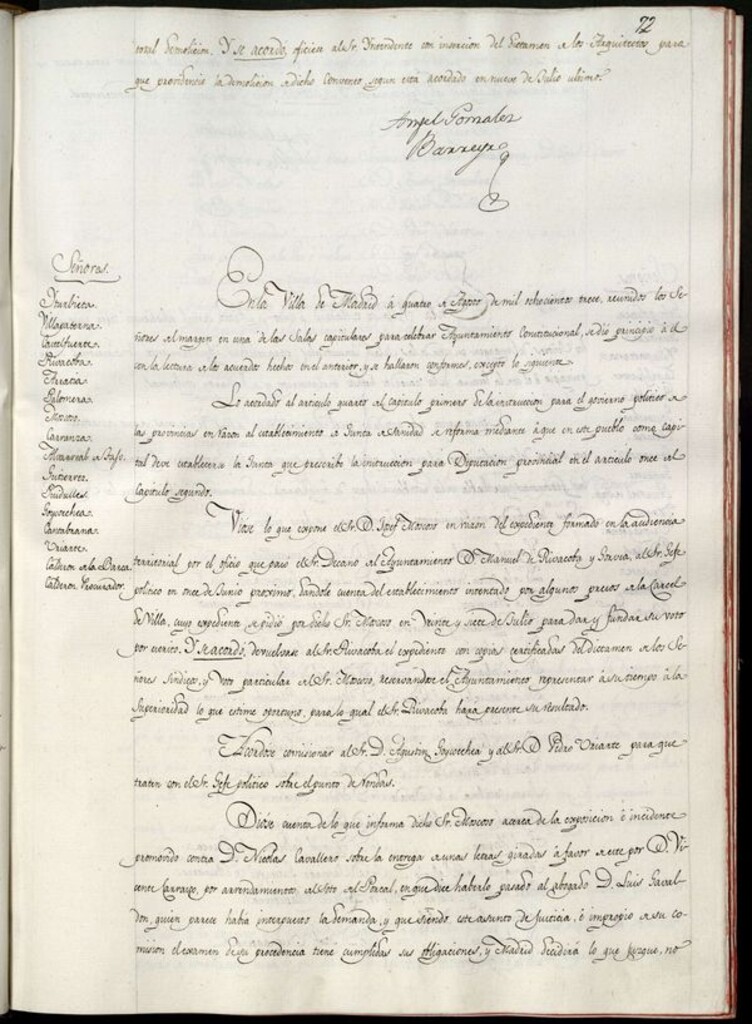 72
total demolicion. Y se acordó, oficiese al Sr. Yntendente con insercion del dictamen de los Arquitectos para
que providencie la demolicion de dicho Convento segun está acordado en nueve de Julio ultimo.
Angel Gonzalez
Barreyro
Señores.
Yturbieta.
Villapaterna.
Castelfuerte.
Rivacoba.
Aracia.
Palomera.
Moscoso.
Carranza.
Gutierrez.
Yndulles.
Goycoechea.
Cantabrana.
Uriarte.
Calderon de la Barca.
Calderon Procurador.
En la Villa de Madrid á quatro de Agosto de mil ochocientos trece, reunidos los Se-
ñores del margen en una de las Salas capitulares para celebrar Ayuntamiento Constitucional, se dió principio á él
con la lectura de los acuerdos hechos en el anterior, y se hallaron conformes, excepto lo siguiente.
Lo acordado al articulo quarto del Capitulo primero de la instruccion para el govierno politico de
las provincias en razon al establecimiento de Junta de Sanidad se reforma mediante á que en este pueblo como capi-
tal deve establecerse la Junta que prescribe la instruccion para Diputacion provincial en el articulo once del
Capitulo segundo.
Viose lo que expone el Sr. D. Josef Moscoso en razon del expediente formado en la audiencia
territorial por el oficio que pasó el Sr. Decano del Ayuntamiento D. Manuel de Rivacoba y Gorvia, al Sr. Gefe
politico en once de Junio proximo, dandole cuenta del establecimiento intentado por algunos presos de la Carcel
de Villa, cuyo expediente se pidió por dicho Sr. Moscoso en Veinte y siete de Julio para dar y fundar su voto
por escrito. Y se acordó, devuelvase al Sr. Rivacoba el expediente con copias certificadas del dictamen de los Se-
ñores Sindicos, y Voto particular del Sr. Moscoso, reservandose el Ayuntamiento representar á su tiempo á la
Superioridad lo que estime oportuno, para lo qual el Sr. Rivacoba hará presente su resultado.
Acordose comisionar al Sr. D. Agustin Goycoechea y al Sr. D. Pedro Uriarte para que
traten con el Sr. Gefe politico sobre el punto de Rondas.
Diose cuenta de lo que informa dicho Sr. Moscoso acerca de la exposicion é incidente
promovido contra D. Nicolas Cavallero sobre la entrega de unas letras giradas á favor de este por D. Vi-
cente Carrasco, por arrendamiento del Soto del Porcal, en que dice haberlo pasado al abogado D. Luis Gaval-
don, quien parece habia interpuesto la demanda, y que siendo este asunto de Justicia, é impropio de su co-
mision el examen de su procedencia tiene cumplidas sus obligaciones, y Madrid decidirá lo que juzgue, no